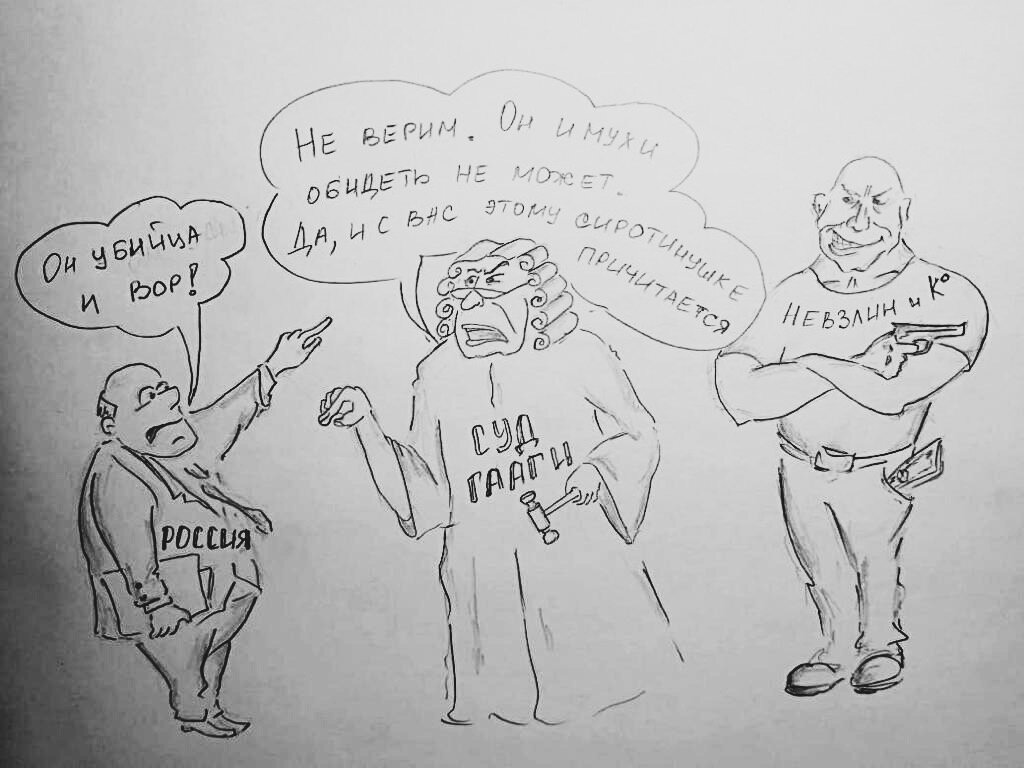 Он убийца
и вор!
Не верим. Он и мухи
обидеть не может.
Да, и с вас этому сиротинушке
причитается
Россия
Суд
Гааги
Невзлин и К°